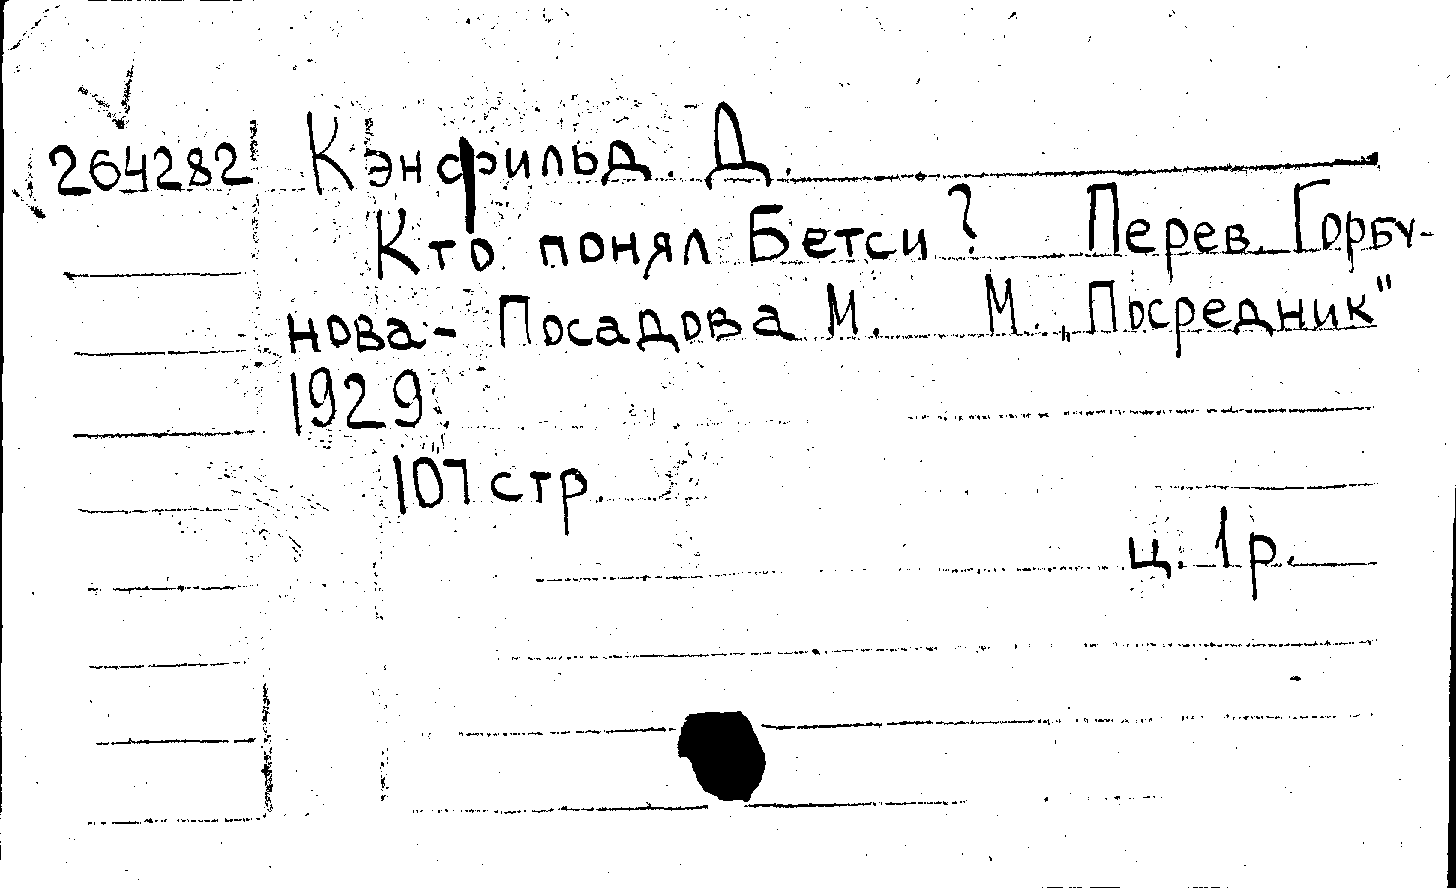 264282 Кэнфильд. Д.
Кто понял Бетси? Перев. Горбу-
нова- Посадова М. М. „Посредник"
1929.
107 стр.
ц. 1 р.